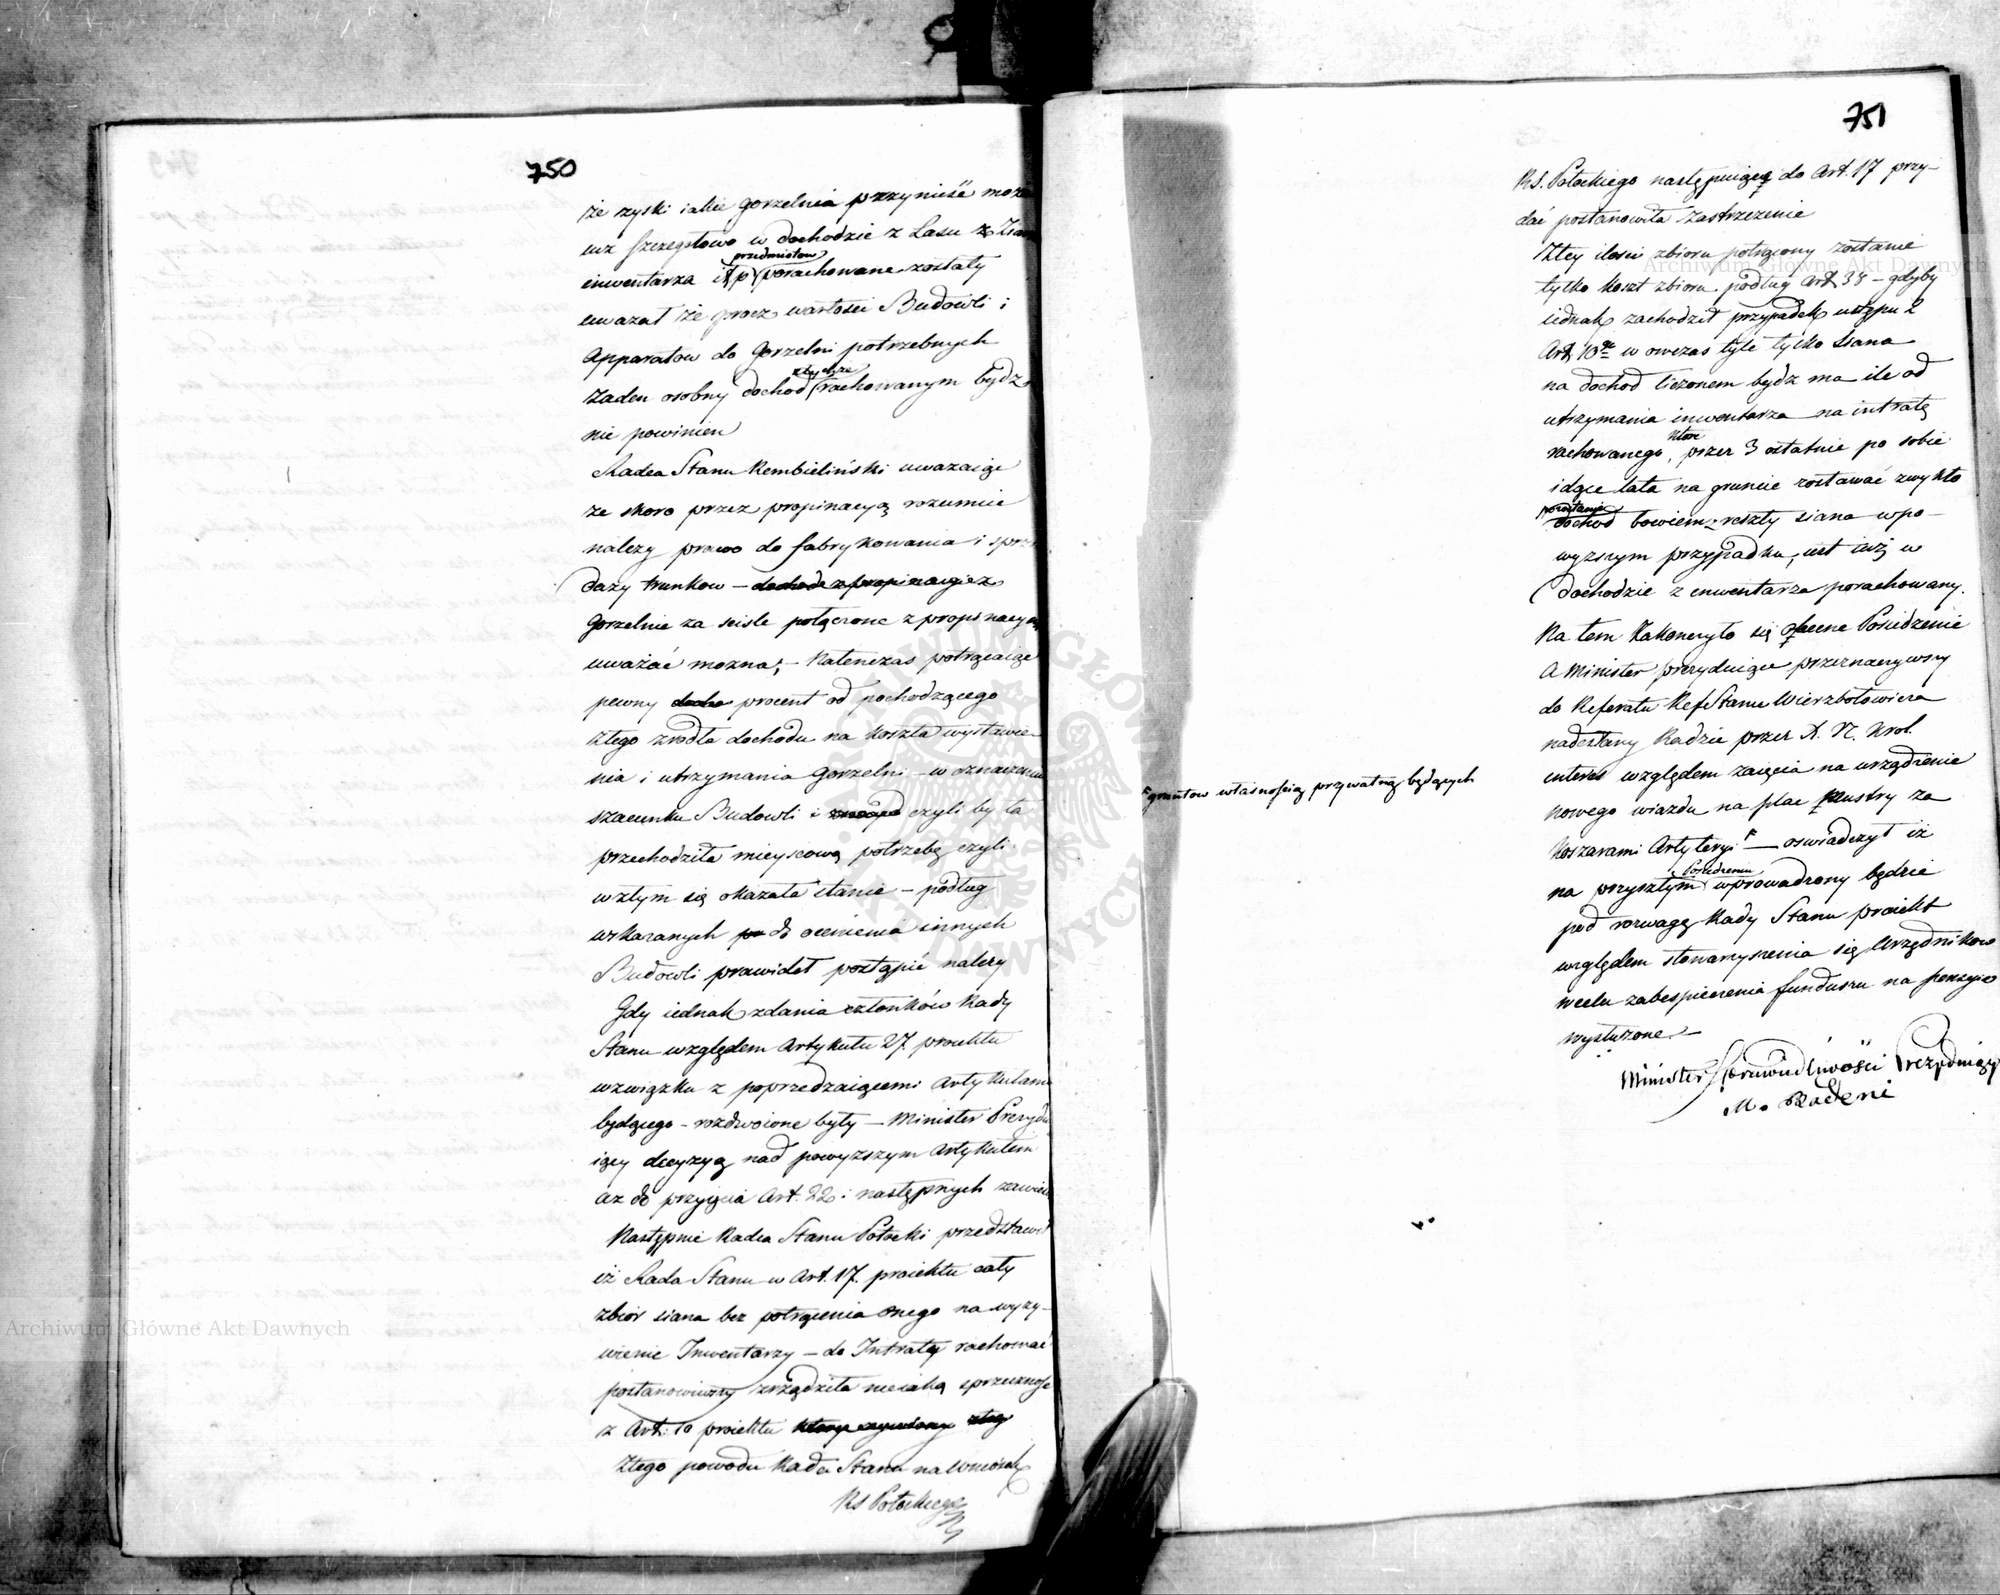 750
że zyski iakie gorzelnia przynieść może
iuż szczegułowo w dochodzie z Lasu z Ziarn
przedmiotow
inwentarza it p porachowane zostały
uważał że procz wartości Budowli i
Apparatow do Gorzelni potrzebnych
żaden osobny dochod rachowanym bydz
nie powinien
Radca Stanu Rembieliński uważaiąc
że skoro przez propinacyą rozumieć
należy prawo do fabrykowania i sprze
daży trunkow – dochod z propinacyi z
Gorzelnie za sciśle połączone z propinacyą
uważać można; – Natenczas potrącaiąc
pewny docho procent od pochodzącego
ztego zrodła dochodu na koszta wystawie
nia i utrzymania Gorzelni – w oznaczeniu
szacunku Budowli i czyli by ta
przechodziła mieyscową potrzebę czyli
wzłym się okazała stanie – podług
wskazanych po do ocenienia innych
Budowli prawideł postąpić należy
Gdy iednak zdania członków Rady
Stanu względem Artykułu 27. proiektu
wzwiązku z poprzedzaiącemi Artykułami
będącego – rozdwoione były – Minister Prezydu
iący decyzyą nad powyższym Artykułem
aż do przyięcia Art. 22 i następnych zawiesił
Następnie Radca Stanu Potocki przedstawił
iż Rada Stanu w Art. 17. proiektu cały
zbior siana bez potrącenia onego na wyży-
wienie Inwentarzy – do Intraty rachować
postanowiwszy zrządziła nieiaką sprzeczność
z Art. 10 proiektu
Ztego powodu Rada Stanu na wniosek
RS Potockiego
751
RS. Potockiego następuiące do Art. 17 przy-
dać postanowiła zastrzeżenie
Ztey ilości zbioru potrącony zostanie
tylko koszt zbioru podług Art 38 – gdyby
iednak zachodził przypadek ustępu 2
Art 10go w owczas tyle tylko siana
na dochod liczonem bydź ma ile od
utrzymania inwentarza na intratę
rachowanego, przez 3 ostatnie po sobie
idące lata na gruncie zostawać zwykło
dochod bowiem z reszty siana wpo-
wyższym przypadku, iest iuż w
dochodzie z inwentarza porachowany.
Na tem zakończyło się obecne Posiedzenie
A Minister prezyduiący przeznaczywszy
do Referatu Ref Stanu Wierzbołowicza
nadesłany Radzie przez X. N. Krol.
interes względem zaięcia na urządzenie
nowego wiazdu na plac Mustry za
Koszarami Artyleryi F – oświadczył iż
F gruntow własnością prywatną będących
Posiedzeniu
na przyszłym wprowadzony będzie
pod rozwagę Rady Stanu proiekt
względem stowarzyszenia się Urzędnikow
wcelu zabespieczenia funduszu na pensyie
wysłużone. –
Minister Sprawiedliwości Prezyduiący
M. Badeni
Archiwum Główne Akt Dawnych
Archiwum Główne Akt Dawnych